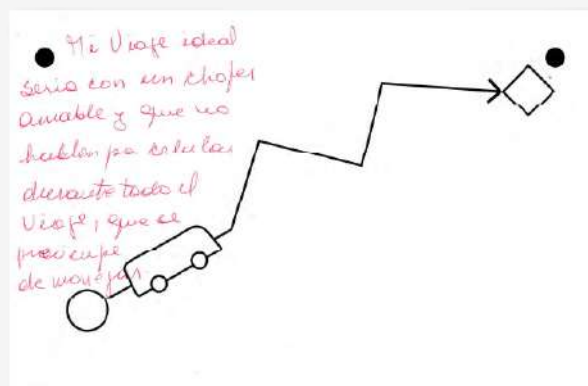 Mi Viaje ideal
seria con un chofer
amable y que no
hablen po celular
durante todo el
Viaje, que se
preocupe
de manejar.